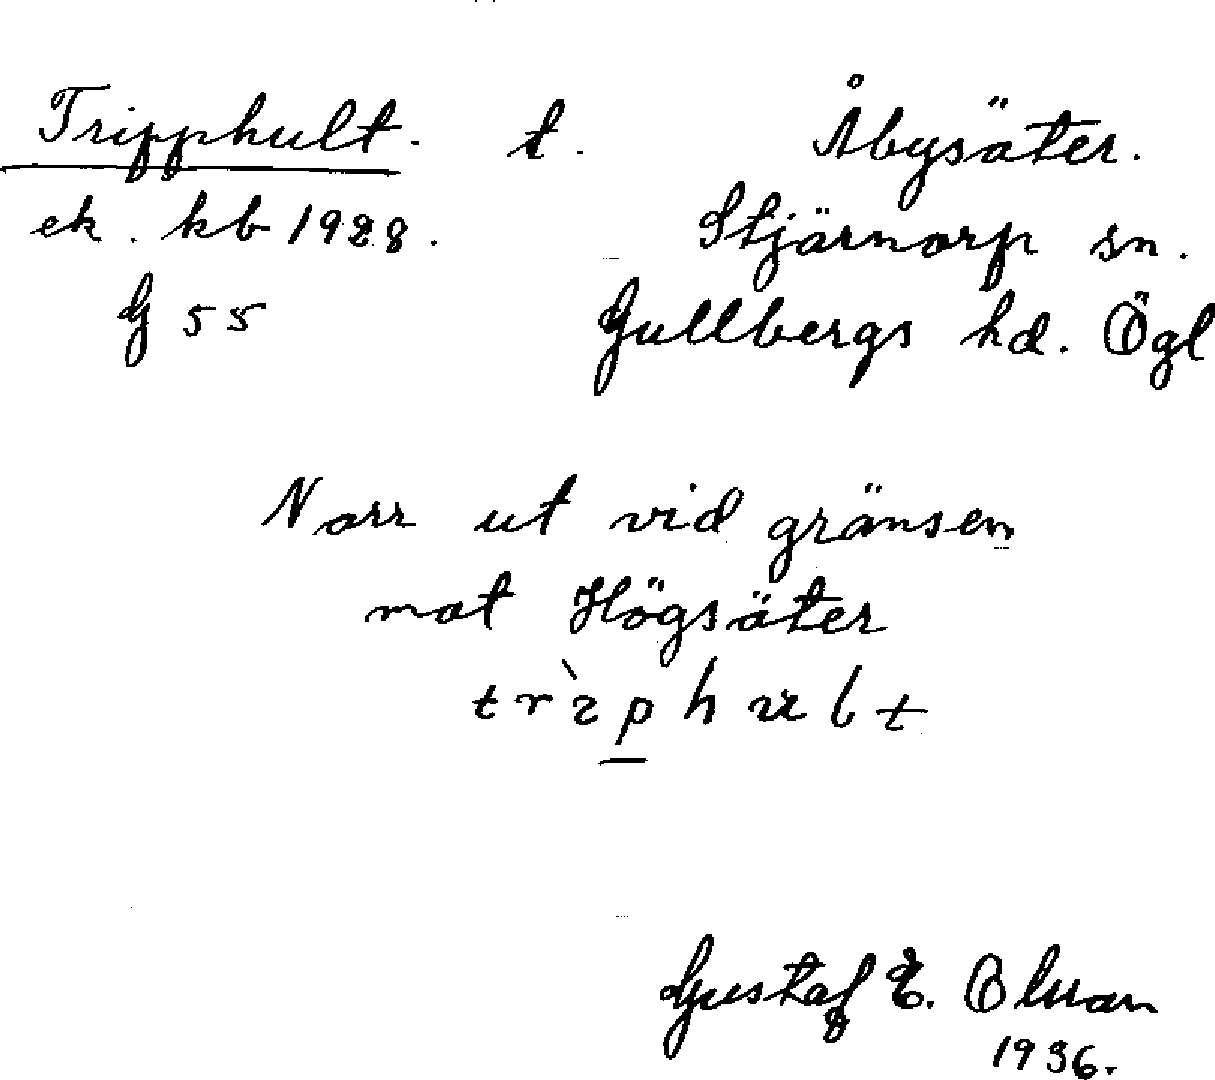 Tripphult. t. Åbysäter.
ek. kb 1928. Stjärnorp sn.
G 55 Gullbergs hd. Ögl
Norr ut vid gränsen
mot Högsäter
trìphult
Gustaf E. Olman
1936.